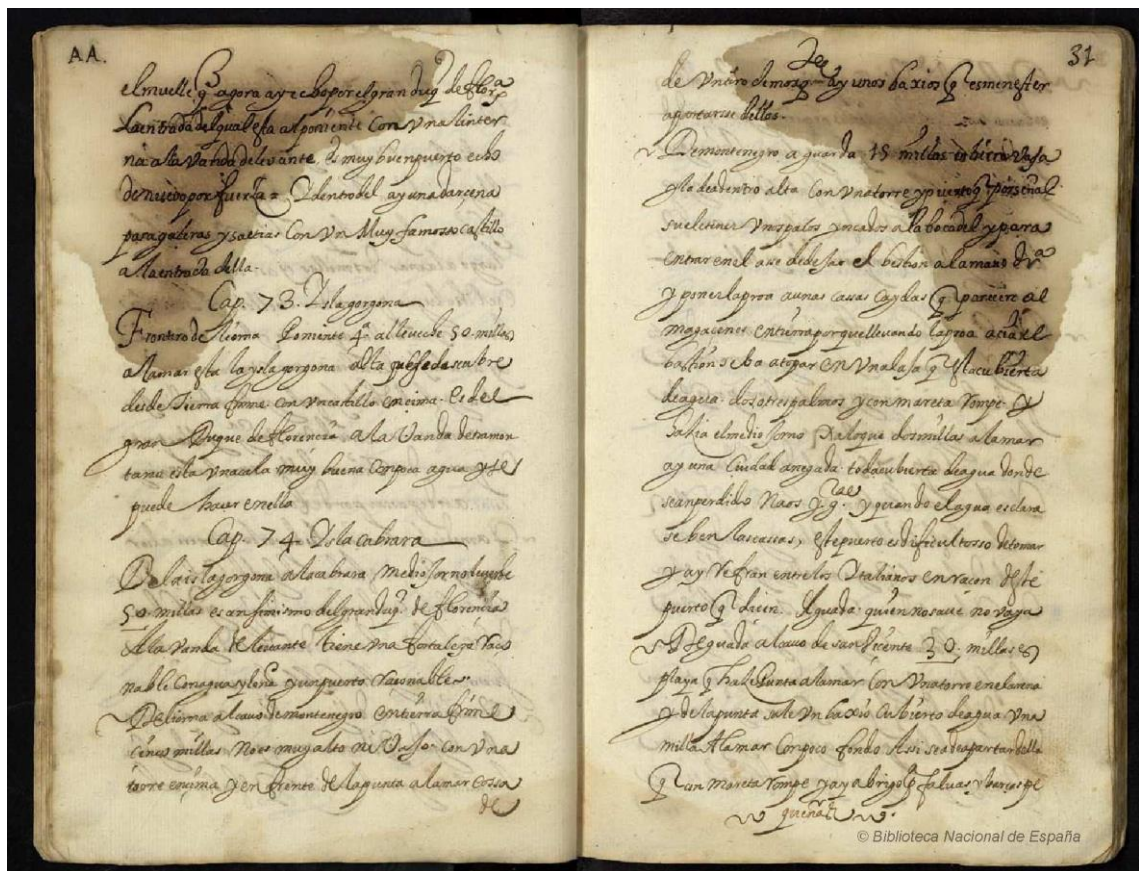 A.A.
el muelle q̃ agora a yecho por el gran duq̃ de flora
La entrada del qual esta al poniente Con Vna linter
na a la Vanda de levante, es muy buen puerto echo
de nuevo por fuerça = I dentro del ay una darcena
para galeras y saetias Con Vn Muy famosso castillo
a la entrada della.
Cap. 73. Isla gorgona
Frontero de liorna Poniente 4ª al leveche 50 millas
a la mar esta la ysla gorgona alta que se descubre
desde Tierra firme con Vn castillo encima. Es del
gran Duque de florencia, a la Vanda de tramon
tana esta Vna cala muy buena Con poca agua y se
puede hacer en ella
Cap. 74. Isla cabrara
De la isla gorgona a la cabrara, medio jorno leveche
50 millas es ansimismo del gran duq̃. de florencia
A la Vanda de levante tiene Vna fortaleza Raço
nable Con agua y leña y un puerto raconable.
De liorna al cauo de montenegro en tierra firme
cinco millas. No es muy alto ni Vajo. con Vna
torre encima y en frente de la punta a la mar Cossa
de
31
de
de Vn tiro de mosqte ay unos baxios q̃ es menester
apartarse dellos.
De montenegro a guarda 15 millas tierra Vaja
y la de adentro alta Con Vna torre y puerto q̃ por señal
suele tener Vnos palos yncados a la boca del y para
entrar en el a se de dejar el bestion a la mano drª
y poner la proa a unas cassas caydas q̃ parecen al
magacenes en tierra porque llevando la proa acia el
bastion se ba a topar en Vna laja q̃ esta cubierta
de agua. dos o tres palmos y con mareta Rompe. Y
acia el medio jorno Xaloque dos millas a la mar
ay una Ciudad anegada toda cubierta de agua donde
se an perdido Naos y gras y quando el agua es clara
se ben las cassas, este puerto es dificultosso de tomar
y ay Refran entre los Italianos en racon deste
puerto q̃ dicen. Aguada. quien no saue no vaya
De guada al cauo de san Vicente 30 millas es
playa q̃ hace Punta a la mar Con Vna torre en el arena
y de la punta sale Vn baxio Cubierto de agua Vna
milla A la mar Con poco fondo. Assi se a de apartar della
q̃ con Mareta rompe y ay abrigo pª faluas y barcos pe
queñas
© Biblioteca Nacional de España